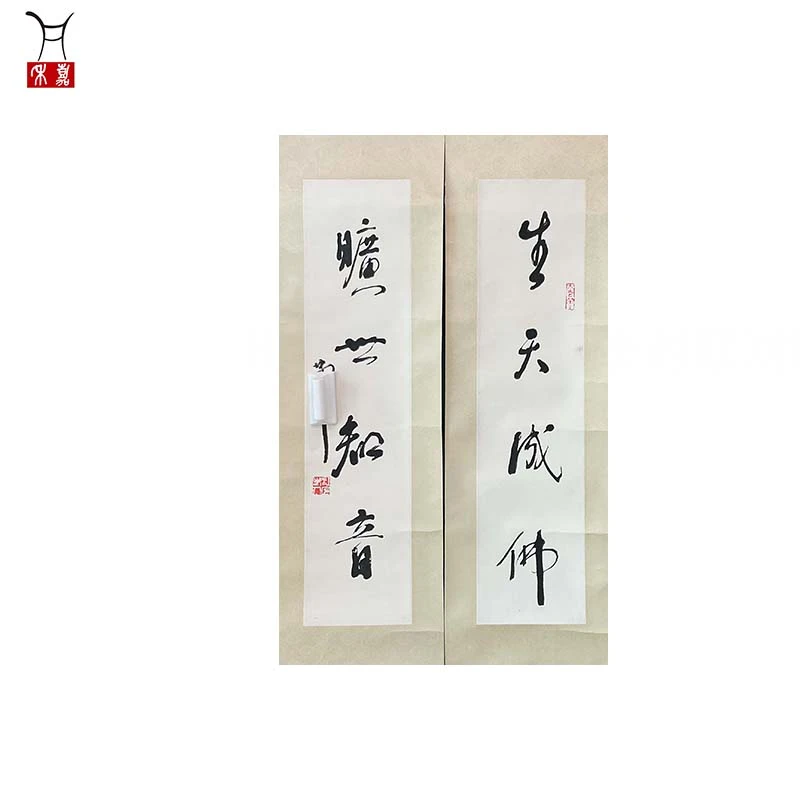 生天成佛
曠世知音
禾嘉